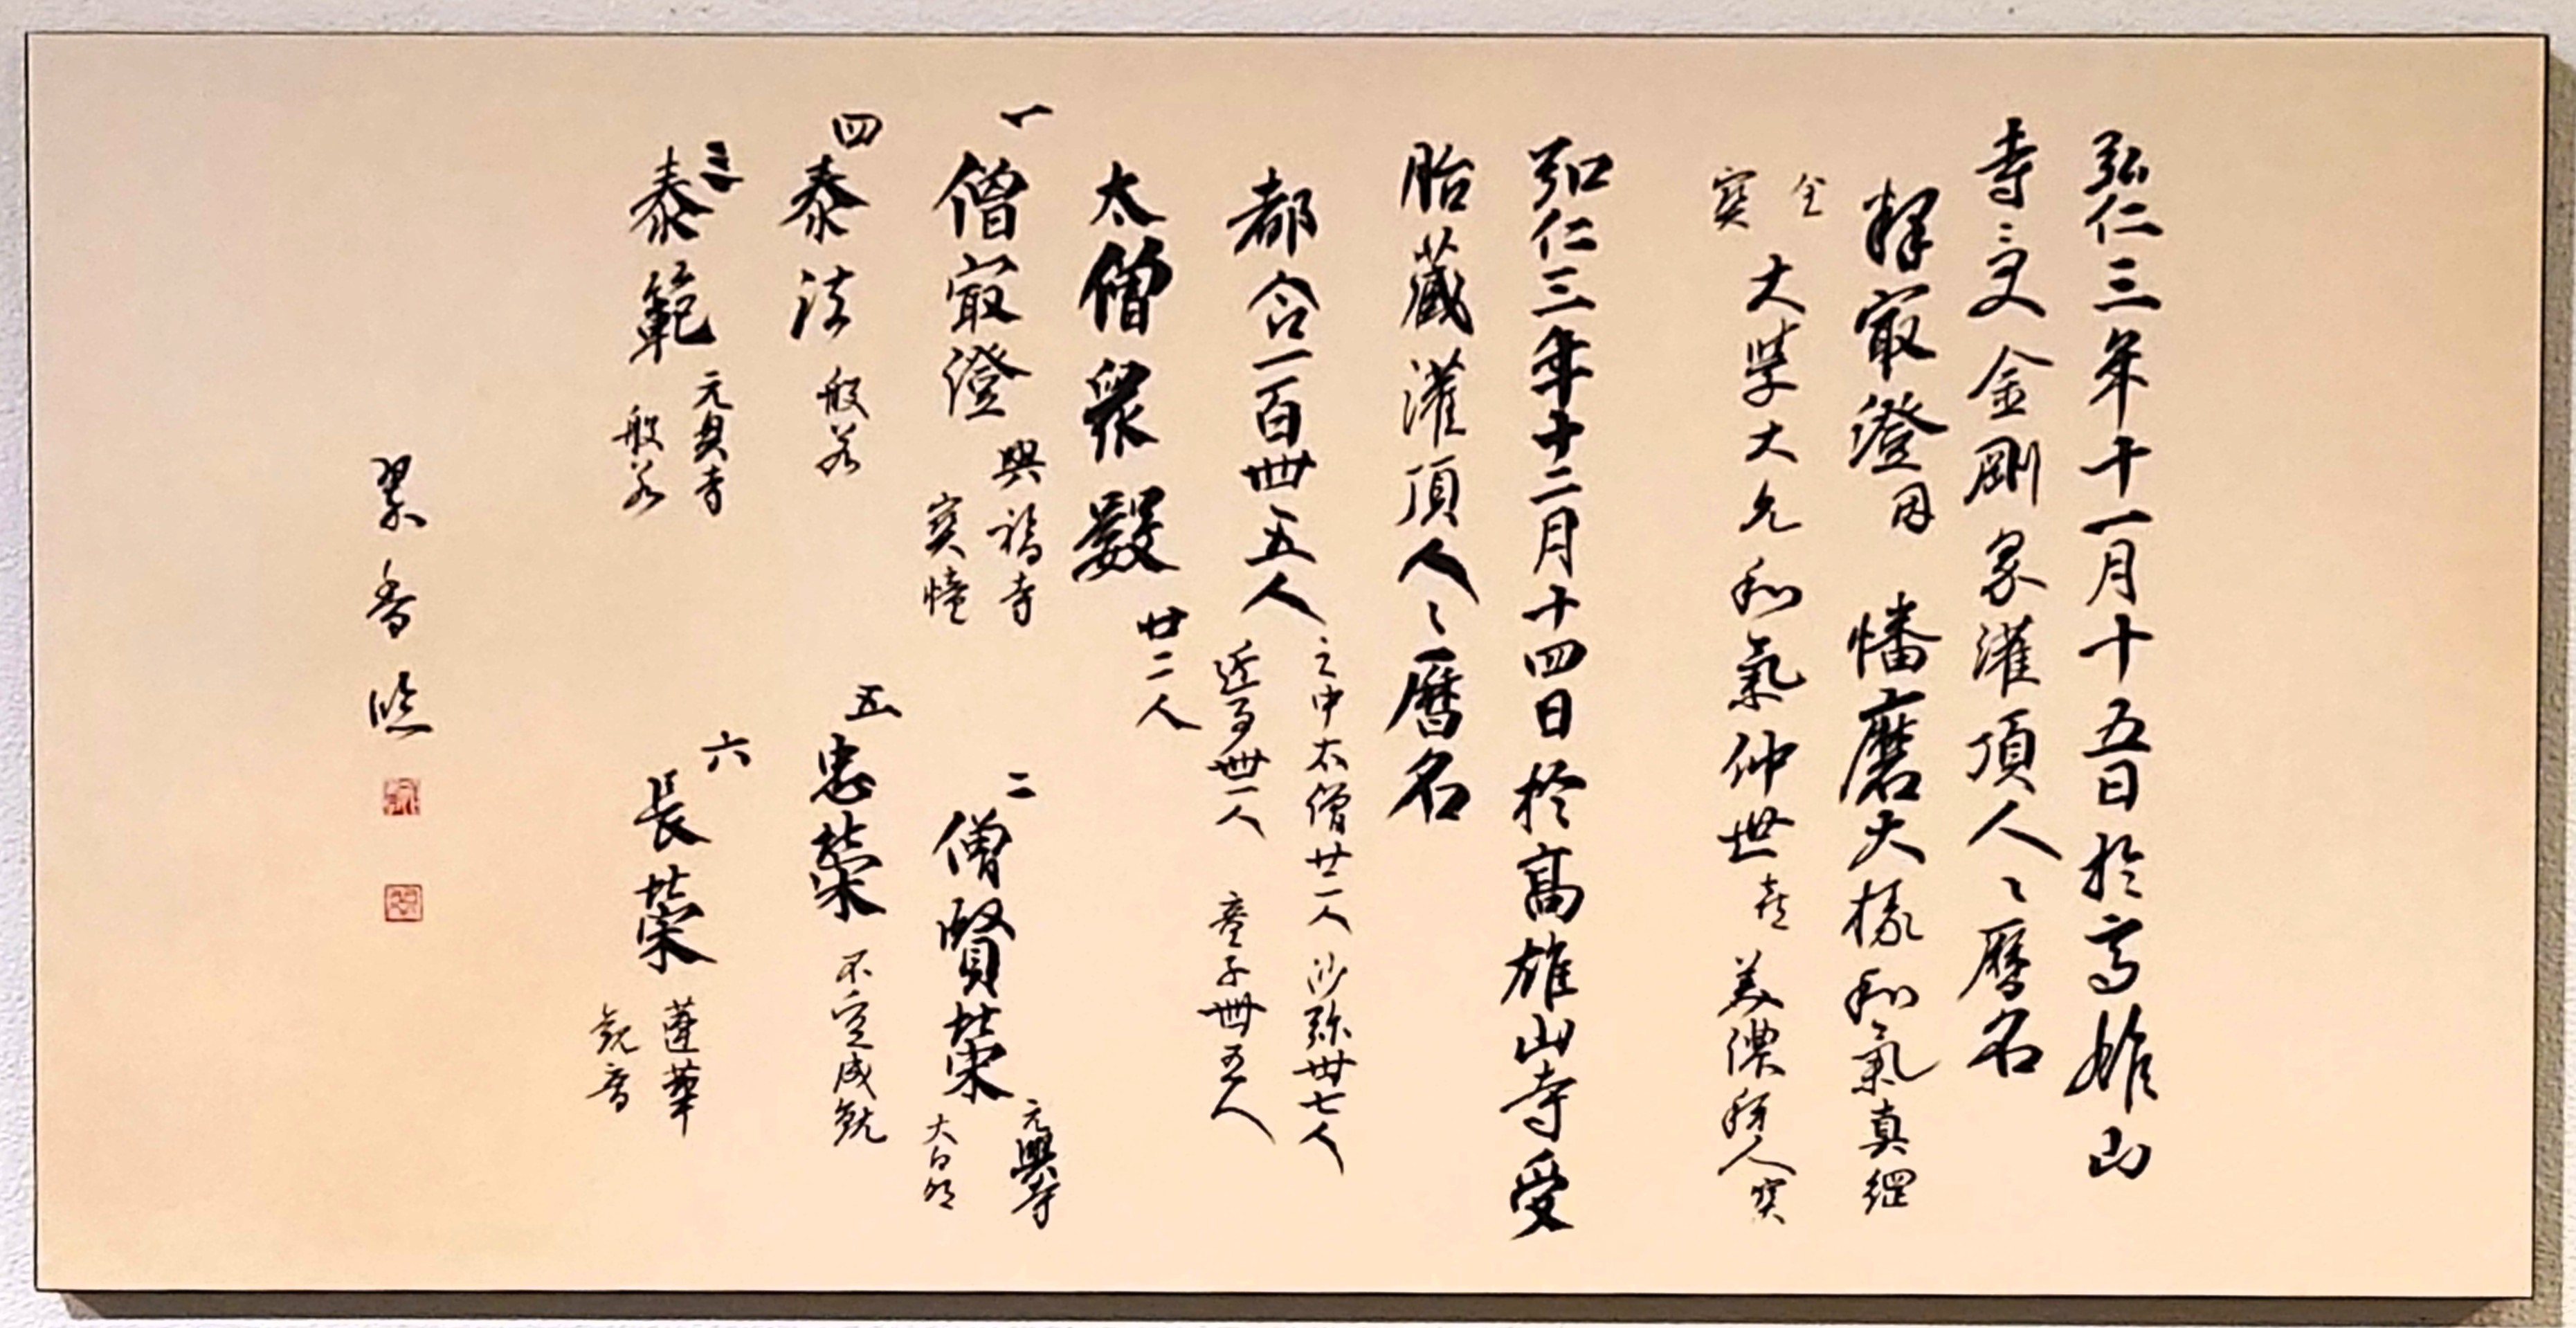 弘仁三年十一月十五日於高雄山
寺受金剛界灌頂人々暦名
釋㝡澄因 幡磨大掾和氣真綱
金
寳 大學大允和氣仲世喜 美濃種人寳
弘仁三年十二月十四日於高雄山寺受
胎蔵灌頂人々暦名
都合一百卌五人
之中太僧廿二人 沙弥卅七人
近事卌一人 童子卌五人
太僧衆數 廿二人
一
僧㝡澄 興福寺
寳幢
二
僧賢榮 元興寺
大日
四
泰法 般若
五
忠榮 不空成就
三
泰範 元興寺
般若
六
長榮 蓮華
観音
翠香